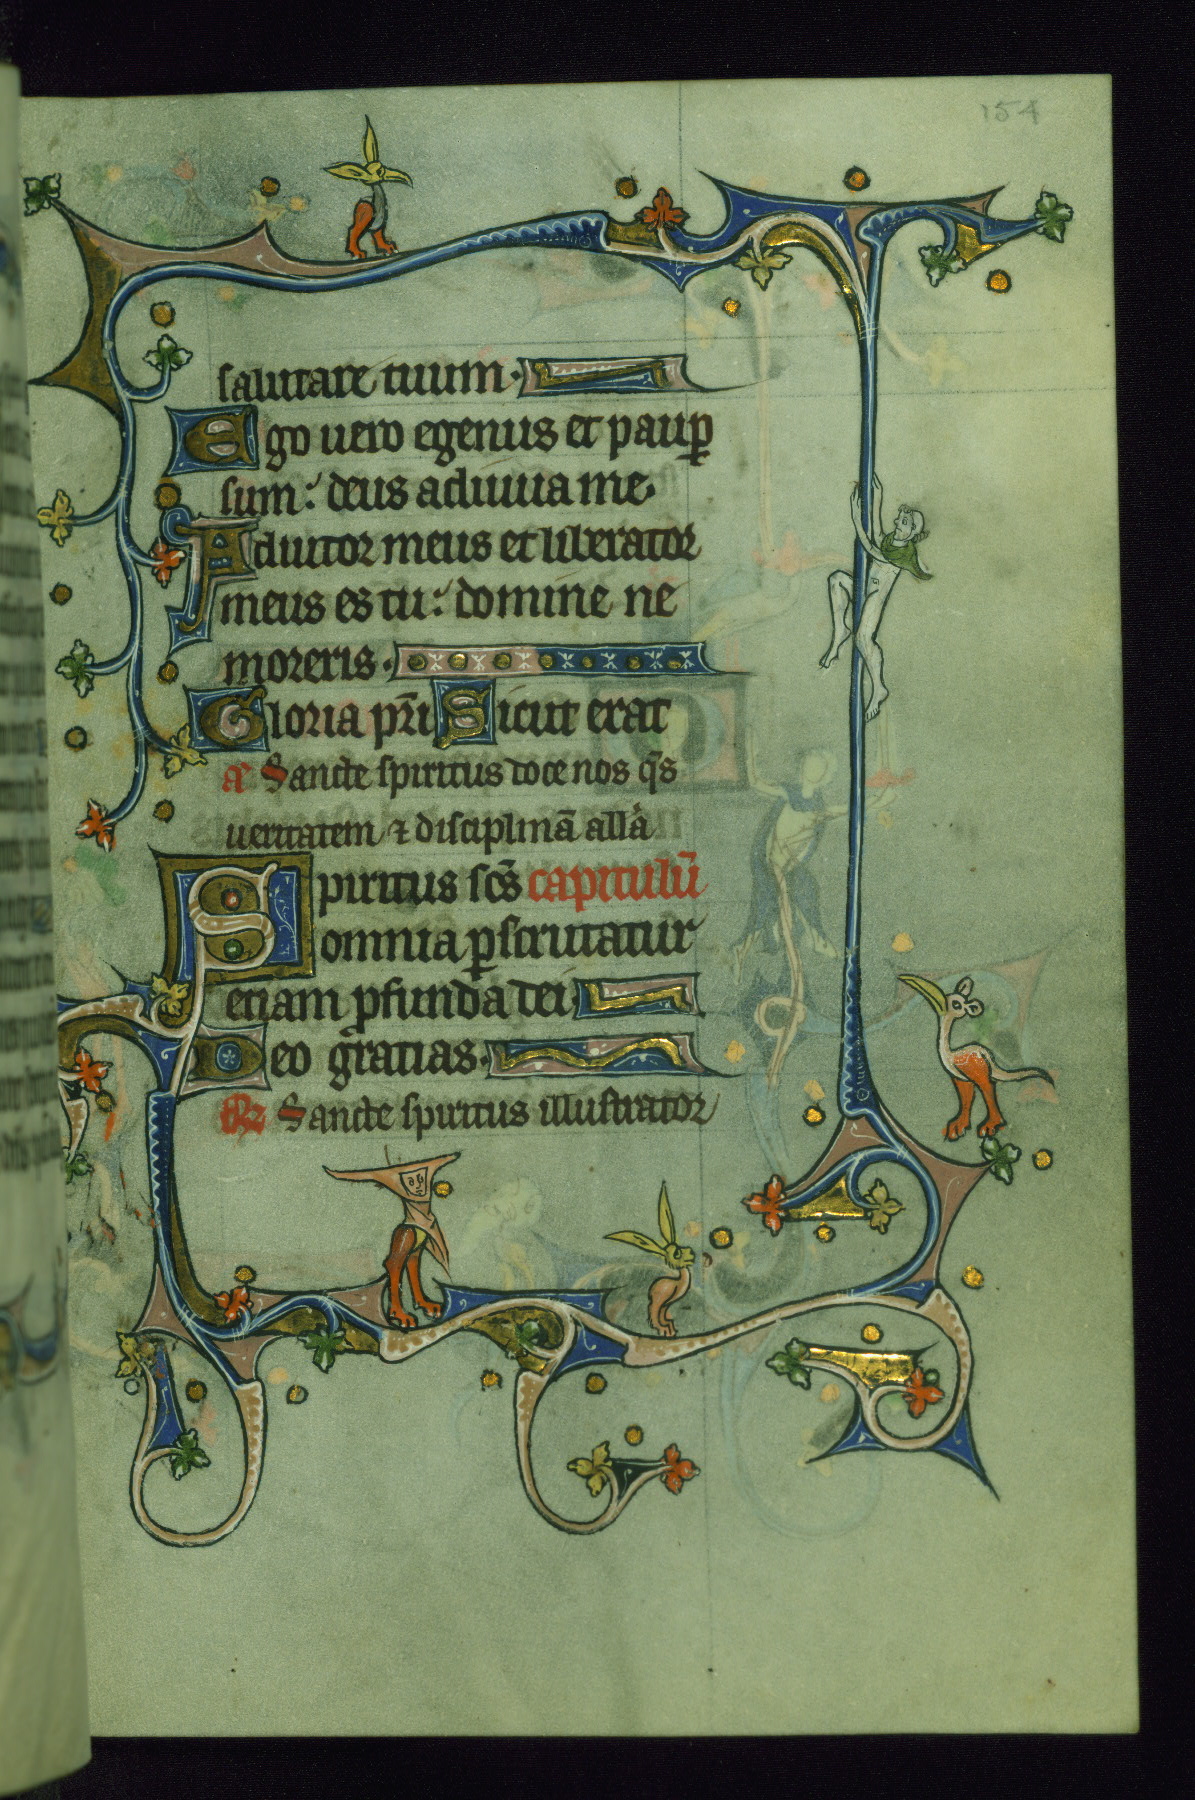 154
salutare tuum.
Ego uero egenus et paup̲
sum: deus adiuua me.
Adiutor meus et liberator
meus es tu: domine ne
moreris.
Gloria pr̄i Sicut erat
a Sancte spiritus doce nos q̄s
ueritatem ⁊ disciplinā allā
Spiritus sc̄s capitulū
omnia ꝑscrutatur
etiam ꝓfunda dei
Deo gratias.
℟ Sancte spiritus illustrator